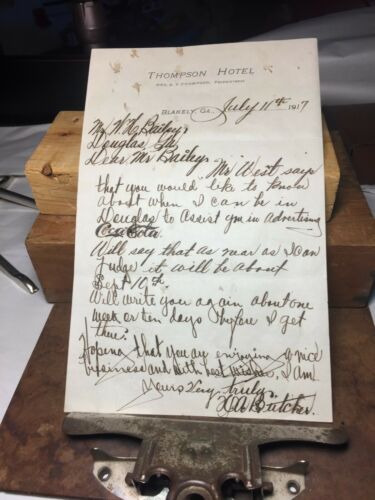 THOMPSON HOTEL
PROPRIETRESS
BLAKELY, GA. July 11th 1917
Mr. W H Bailey,
Douglas, Ga.
Dear Mr Bailey,
Mr West says
that you would like to know
about when I can be in
Douglas to assist you in advertising
Coca Cola.
Will say that as near as I can
judge it will be about
Sept 10th.
Will write you again about one
week or ten days before I get
there.
Hoping that you are enjoying a nice
business and with best wishes, I am
Yours Very truly,
Butcher.